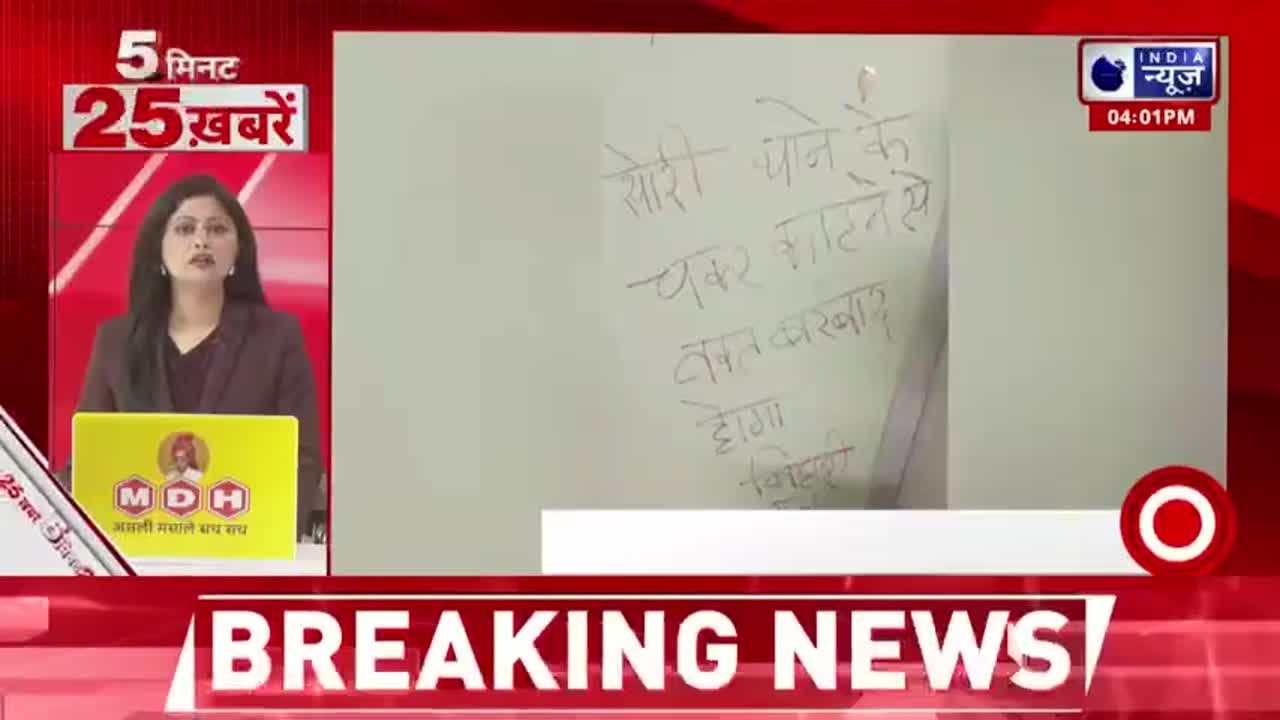 5 मिनट
25 ख़बरें
INDIA
न्यूज़
04:01PM
सोरी थाने के
चकर काटने से
वक्त बरबाद
होगा
MDH
असली मसाले सच सच
25 ख़बर
BREAKING NEWS